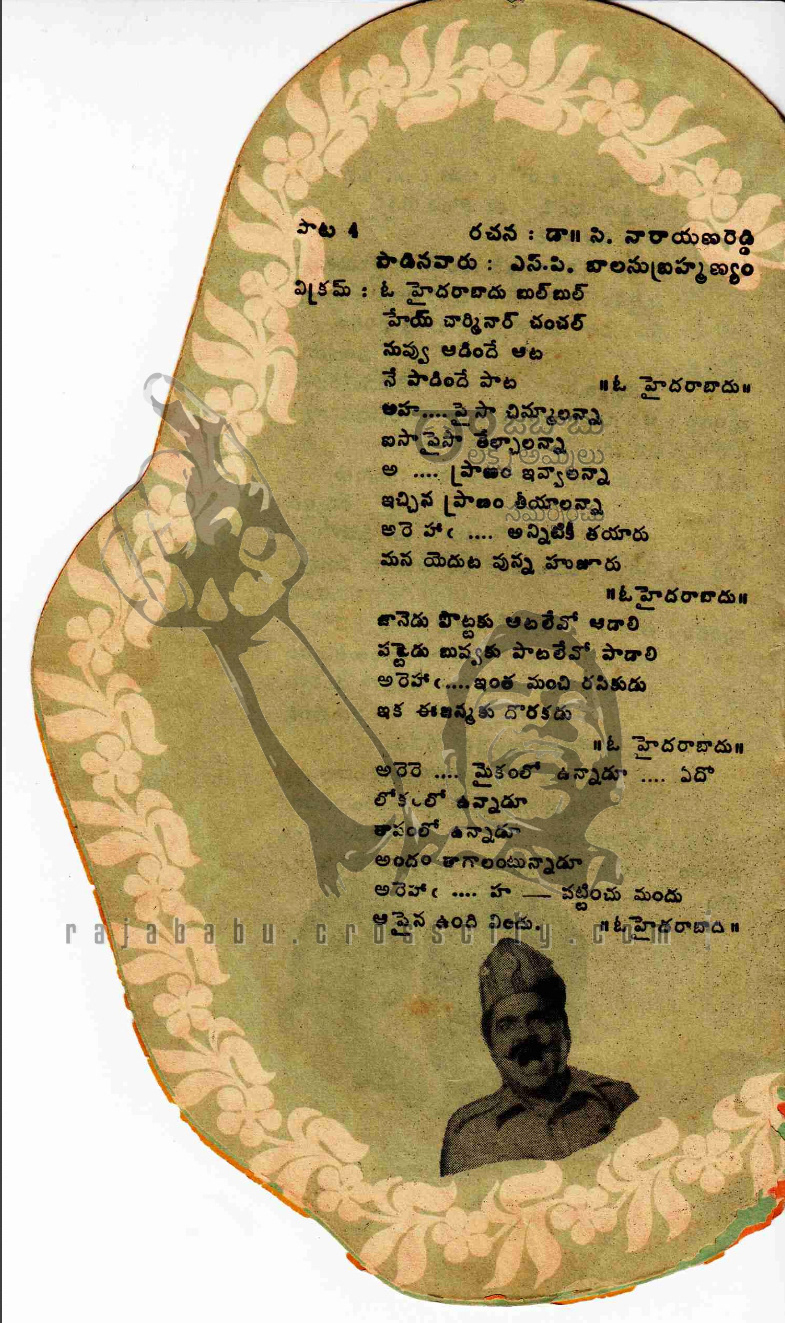 పాట 4 రచన : డా॥ సి. నారాయణరెడ్డి
పాడినవారు : ఎస్.పి. బాలసుబ్రహ్మణ్యం
విక్రమ్ : ఓ హైదరాబాదు బుల్‌బుల్
హేయ్ చార్మినార్ చంచల్
నువ్వు ఆడిందే ఆట
నే పాడిందే పాట ॥ఓ హైదరాబాదు॥
అహ.... పైసా చిమ్మాలన్నా
ఐసా పైసా తేల్చాలన్నా
అ .... ప్రాణం ఇవ్వాలన్నా
ఇచ్చిన ప్రాణం తీయాలన్నా
అరె హాఁ .... అన్నిటికీ తయారు
మన యెదుట వున్న హుజూరు
॥ఓహైదరాబాదు॥
జానెడు పొట్టకు ఆటలేవో ఆడాలి
పట్టెడు బువ్వకు పాటలేవో పాడాలి
అరెహాఁ....ఇంత మంచి రసికుడు
ఇక ఈజన్మకు దొరకడు
॥ఓ హైదరాబాదు॥
అరెరె .... మైకంలో ఉన్నాడూ .... ఏదో
లోకంలో ఉన్నాడూ
తాపంలో ఉన్నాడూ
అందం తాగాలంటున్నాడూ
అరెహాఁ .... హ — పట్టించు మందు
ఆపైన ఉంది విందు. ॥ఓహైదరాబాదు॥
rajababu.crosscity.com
రాజబాబు
లక్ష్మీఅమ్మలు
సమర్పించు